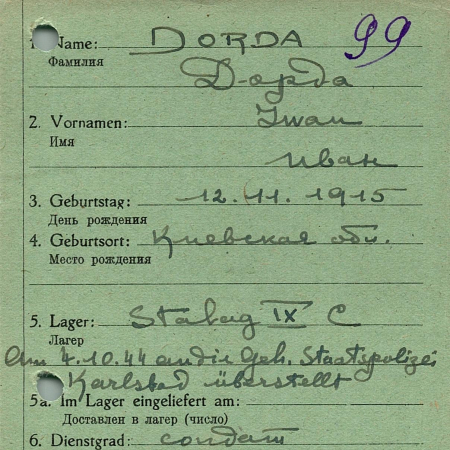 1. Name: DORDA 99
Фамилия
Дорда
2. Vornamen: Iwan
Имя
Иван
3. Geburtstag: 12. 11. 1915
День рождения
4. Geburtsort: Киевская обл.
Место рождения
5. Lager: Stalag IX C
Лагер
Am 4.10.44 an die Geh. Staatspolizei
Karlstad überstellt
5a. Im Lager eingeliefert am:
Доставлен в лагер (число)
6. Dienstgrad: солдат